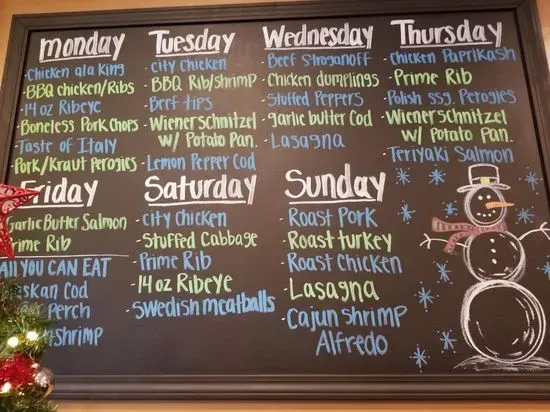 Monday
- Chicken ala King
- BBQ chicken/Ribs
- 14 oz Ribeye
- Boneless Pork Chops
- Taste of Italy
- Pork/Kraut perogies
Tuesday
- City Chicken
- BBQ Rib/shrimp
- Beef tips
- Wienerschnitzel
w/ Potato Pan.
- Lemon Pepper Cod
Wednesday
- Beef Stroganoff
- Chicken dumplings
- Stuffed Peppers
- garlic butter Cod
- Lasagna
Thursday
- Chicken Paprikash
- Prime Rib
- Polish ssg. Perogies
- Wienerschnitzel
w/ Potato Pan.
- Teriyaki Salmon
Friday
Garlic Butter Salmon
Prime Rib
All YOU CAN EAT
Cod
Perch
shrimp
Saturday
- City Chicken
- Stuffed Cabbage
- Prime Rib
- 14 oz Ribeye
- Swedish meatballs
Sunday
- Roast Pork
- Roast turkey
- Roast Chicken
- Lasagna
- Cajun shrimp
Alfredo